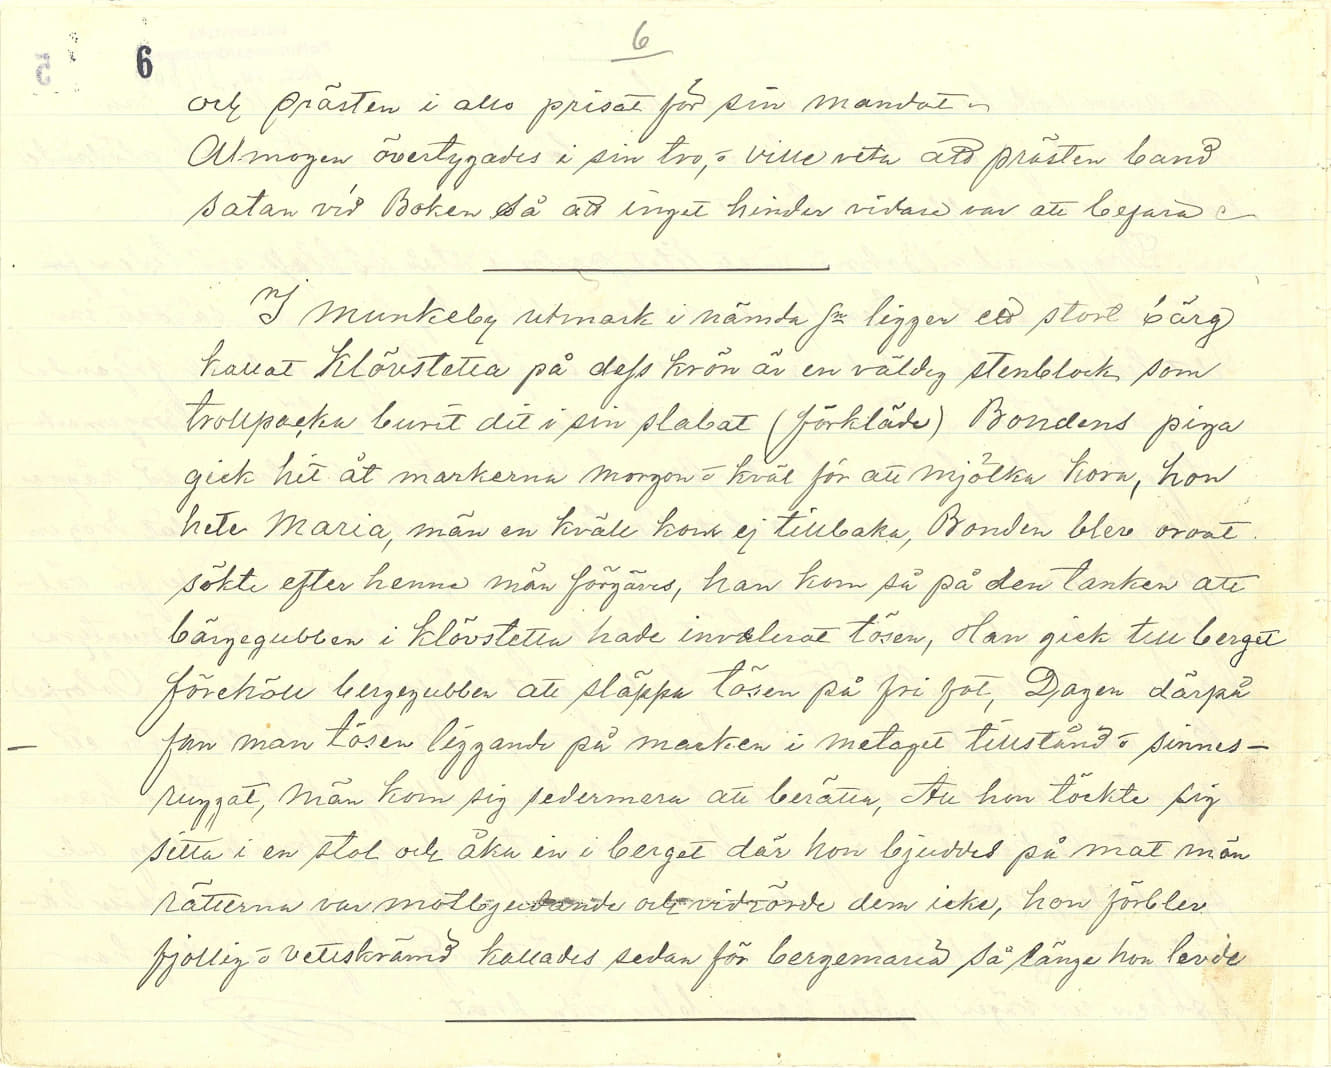 6
6
och prästen i alls prisat för sin mandat
Almogen övertygades i sin tro, o ville veta att prästen band
satan vid Boken så att inget hinder vidare var att befara
I Munkeby utmark i nämda sn ligger ett stort bärg
kallat Klövstetta på dess krön är en väldig stenblock som
trollpacka burit dit i sin slabat (förkläde) Bondens piga
gick hit åt markerna morgon o kväl för att mjölka kora, hon
hete Maria, män en kväll kom ej tillbaka, Bonden blev oroat
sökte efter henne män förgäves, han kom så på den tanken att
bärgegubben i klövstetta hade involerat tösen, Han gick till berget
föreholl bergegubben att släppa tösen på fri fot, Dagen därpå
fan man tösen liggande på marken i metaget tillstånd o sinnes-
ruggat, män kom sig sedermera att berätta, Att hon töckte sig
sitta i en stol och åka in i berget där hon bjuddes på mat män
rätterna var motbjudande och vidrörde dem icke, hon förblev
fjollig o vettskrämd kallades sedan för bergemaria så länge hon levde